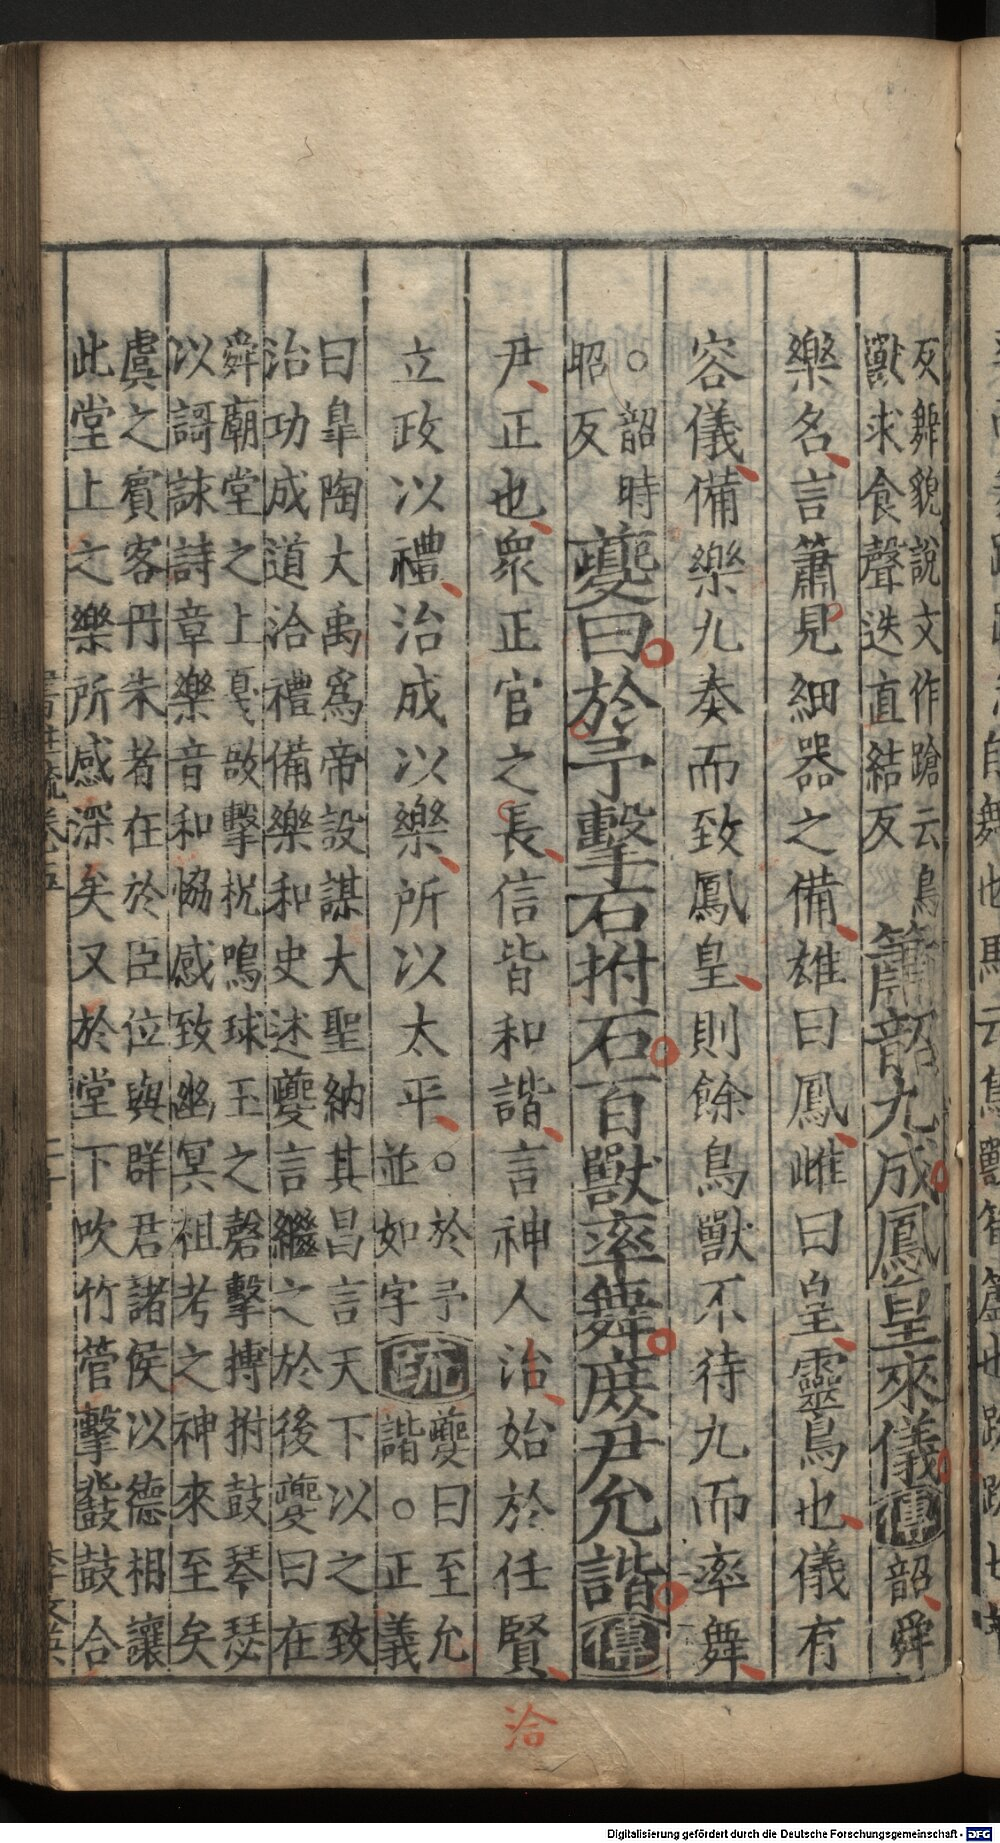 反舞貌說文作蹌云鳥
獸求食聲迭直結反
簫韶九成鳳皇來儀傳韶舜
樂名言簫見細器之備雄曰鳳雌曰皇靈鳥也儀有
容儀備樂九奏而致鳳皇則餘鳥獸不待九而率舞
○韶時
昭反
夔曰於予擊石拊石百獸率舞庶尹允諧傳
尹正也衆正官之長信皆和諧言神人治始於任賢
立政以禮治成以樂所以太平
○於予
並如字
疏
夔曰至允
諧○正義
曰臯陶大禹爲帝設謀大聖納其昌言天下以之致
治功成道洽禮備樂和史述夔言繼之於後夔曰在
舜廟堂之上戛敔擊柷鳴球玉之磬擊搏拊鼓琴瑟
以謌詠詩章樂音和協感致幽冥祖考之神來至矣
虞之賓客丹朱者在於臣位與群君諸侯以德相讓
此堂上之樂所感深矣又於堂下吹竹管擊鼗鼓合
洽
Digitalisierung gefördert durch die Deutsche Forschungsgemeinschaft - DFG